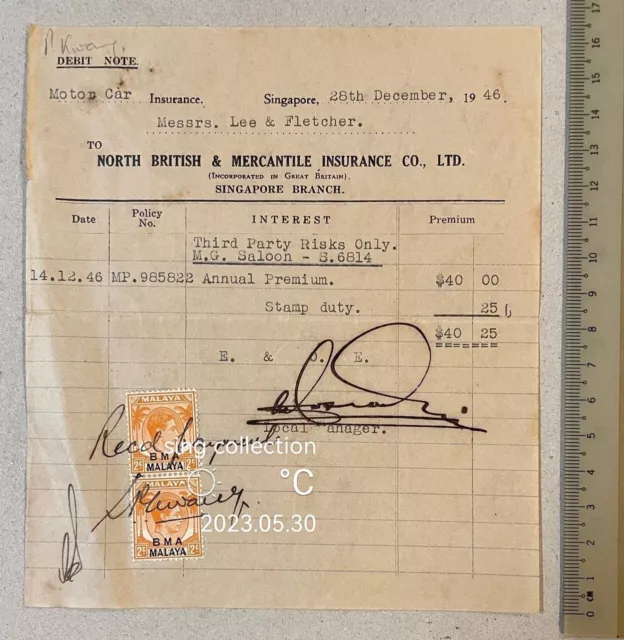 P Kwang.
DEBIT NOTE.
Motor Car Insurance. Singapore, 28th December, 1946.
Messrs. Lee & Fletcher.
TO
NORTH BRITISH & MERCANTILE INSURANCE CO., LTD.
(INCORPORATED IN GREAT BRITAIN).
SINGAPORE BRANCH.
Date Policy No. INTEREST Premium
Third Party Risks Only.
M.G. Saloon - S.6814
14.12.46 MP.985822 Annual Premium. $40 00
Stamp duty. 25
$40 25
E. & O. E.
Local anager.
MALAYA
Recd payment
sing collection
2c BMA 2c
MALAYA
°C
MALAYA
2023.05.30
BMA
2c MALAYA 2c
17
16
15
14
13
12
11
10
9
8
7
6
5
4
3
2
1
0 CM